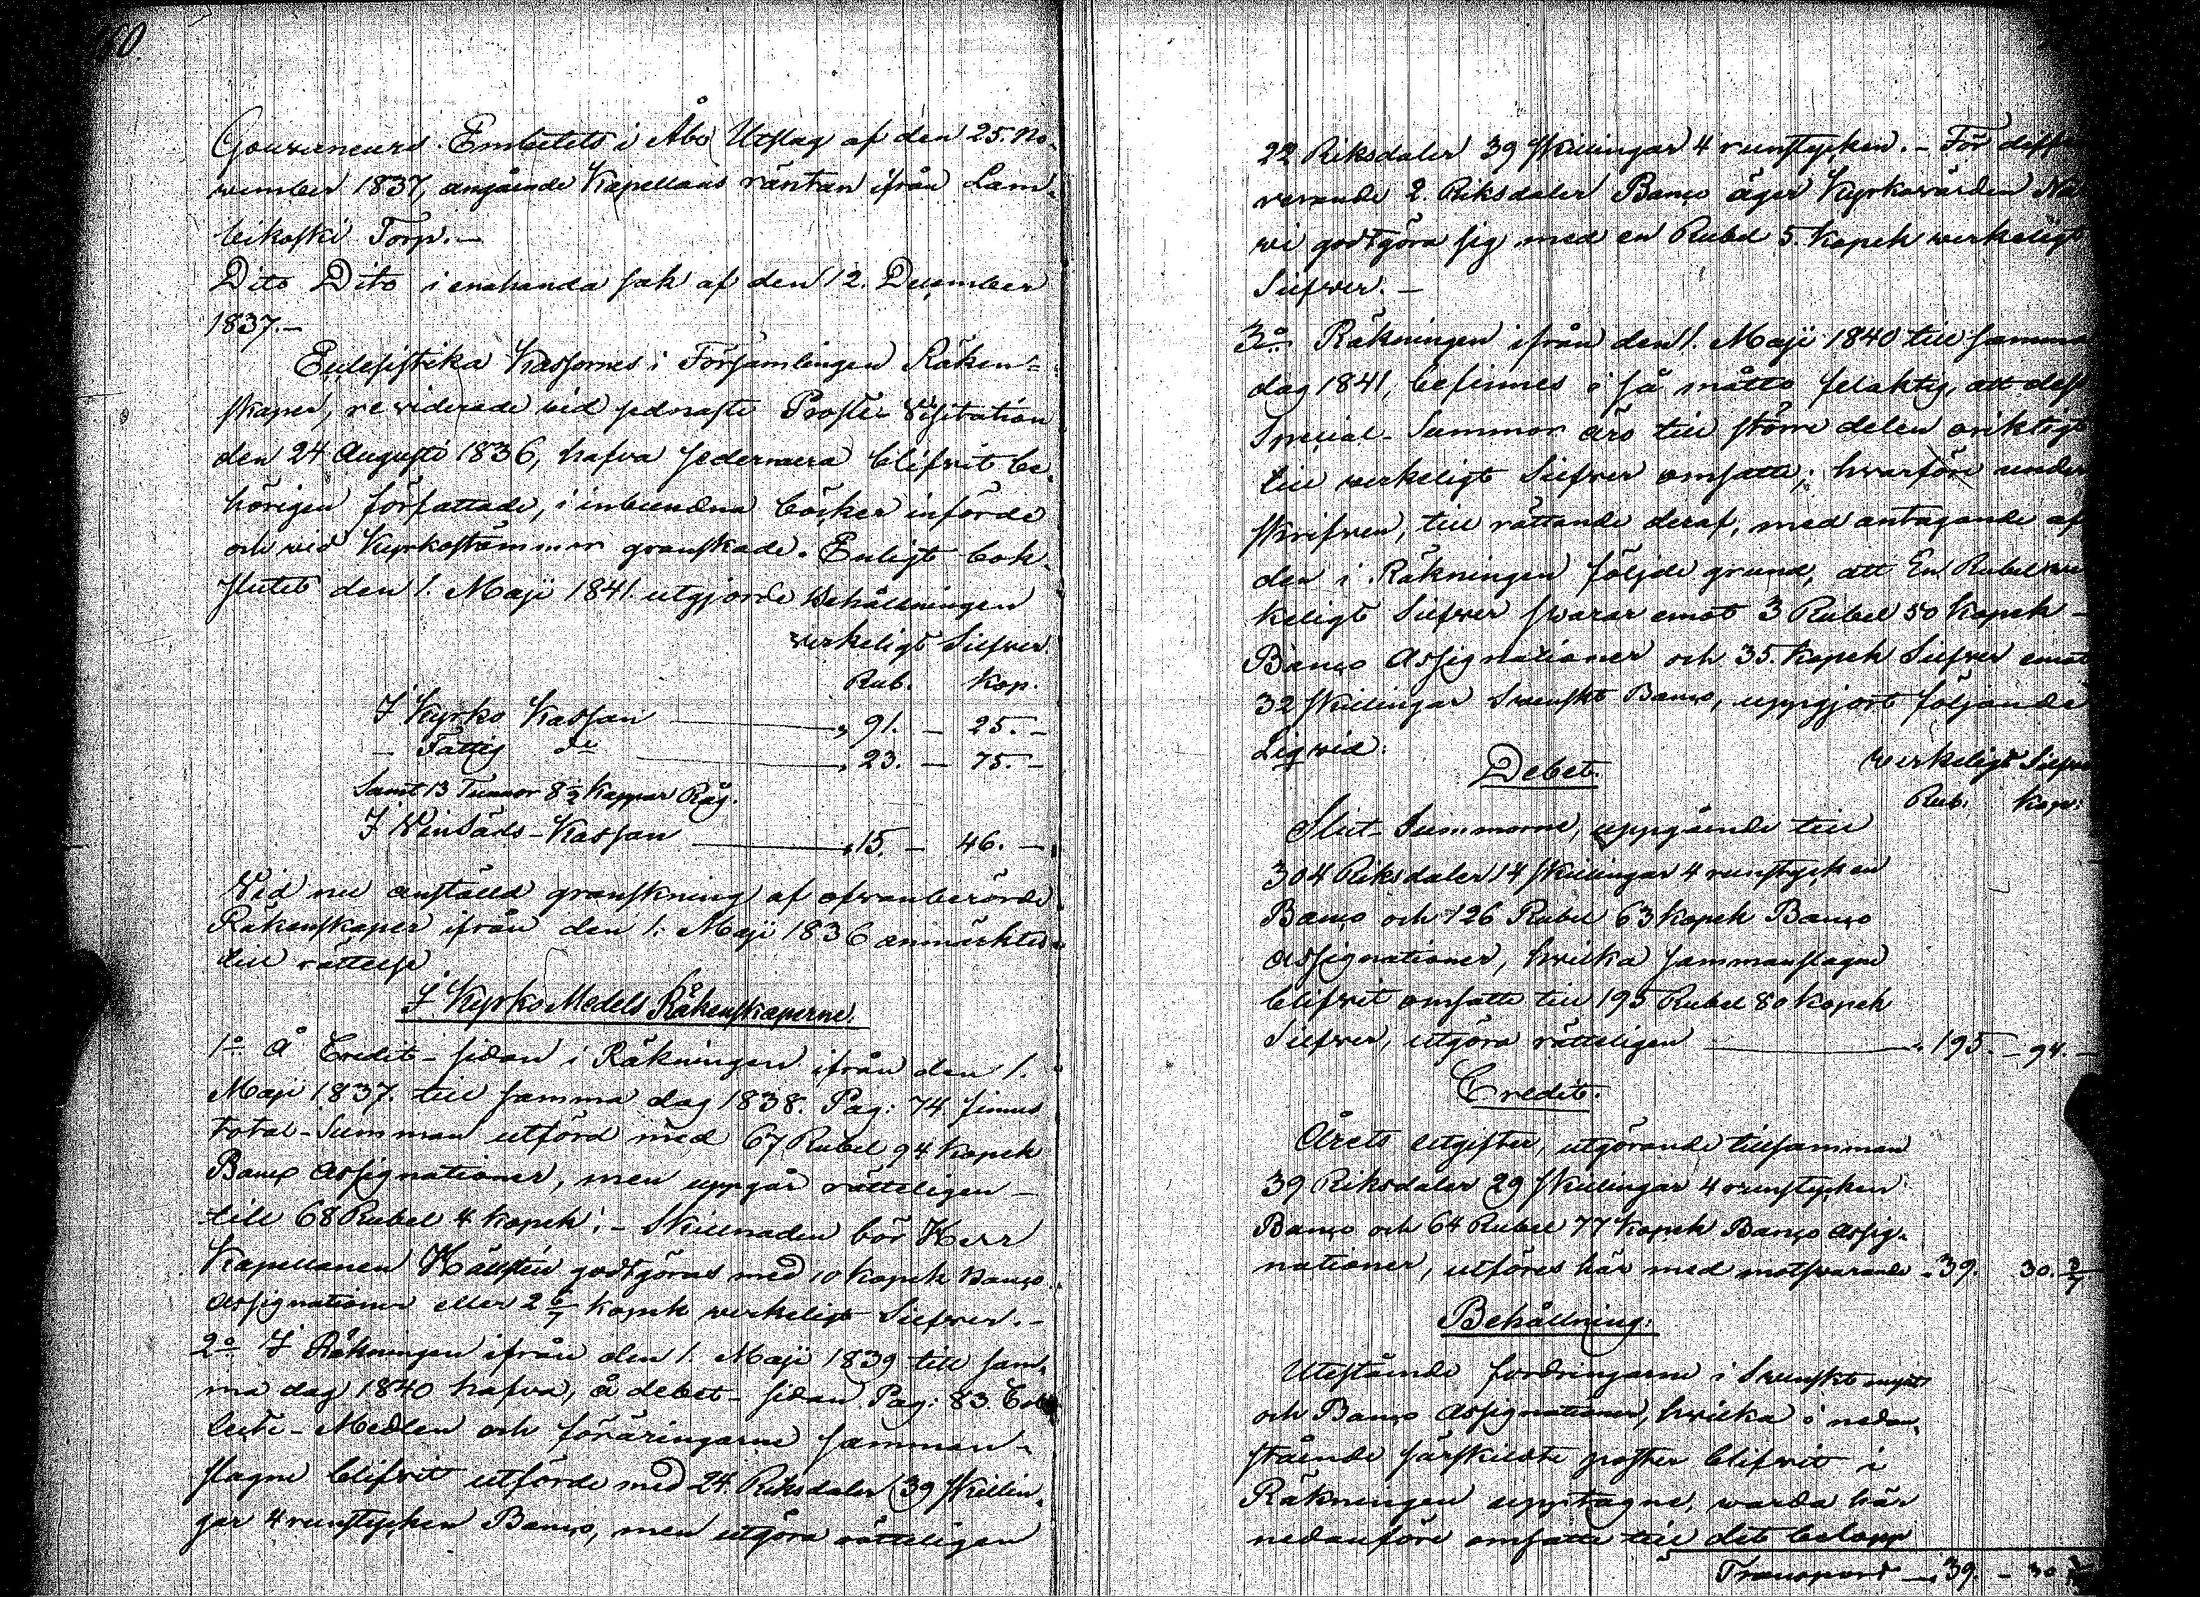 60.
Gouverneurs-Embetets i Åbo Utslag af den 25. No-
vember 1837, angående Kapellans räntan ifrån Lam-
bikoski Torp.—
Dito Dito i enahanda sak af den 12. December
1837.—
Eclesistika Kassornes i Församlingen Räken-
skaper, reviderade vid sednaste Prosts-Visitation
den 24 Augusti 1836, hafva sedermera blifvit be-
hörigen författade, i inbundna böcker införde
och vid Kyrkostämmor granskade. Enligt bok-
slutet den 1. Maji 1841. utgjorde Behållningen
verkeligt Silfver
Rub. Kop.
I Kyrko Kassan — „ 91. — 25. —
— Fattig do — „ 23. — 75. —
Samt 13 Tunnor 8½ Kappar Råg.
I Vinsäds-Kassan — „ 15. — 46. —
Vid nu anställd granskning af ofvanberörde
Räkenskaper ifrån den 1. Maji 1836 anmärktes
till rättelse
I Kyrko Medels Räkenskaperne.
1o Å Credit-sidan i Räkningen ifrån den 1.
Maji 1837. till samma dag 1838. Pag: 74 finnes
total-Summan utförd med 67 Rubel 94 Kopek
Banco Assignationer, men uppgår rätteligen —
till 68 Rubel 4 Kopek; — Skillnaden bör Herr
Kapellanen Hällsten godtgöras med 10 Kopek Banco
Assignationer eller 2 6/7 Kopek verkeligt Silfver. —
2o I Räkningen ifrån den 1. Maji 1839 till sam-
ma dag 1840 hafva, å debet-sidan Pag: 83 Col-
lect-Medlen och föräringarne samman-
slagne blifvit utförde med 24. Riksdaler 39 Skillin-
gar 4 runstycken Banco, men utgöra rätteligen
22 Riksdaler 39 Skillingar 4 runstycken. — För diffe
rerande 2. Riksdaler Banco äger Kyrkovärden
vi godtgöra sig med en Rubel 5. Kopek verkeligt
Silfver. —
3o Räkningen ifrån den 1. Maji 1840 till samma
dag 1841, befinnes i så måtto felaktig, att dess
Special-Summor äro till större delen oriktigt
till verkeligt Silfver omsatte; hvarföre under
skrifven, till rättande deraf, med antagande af
den i Räkningen följde grund, att En Rubel ver
keligt Silfver svarar emot 3 Rubel 50 Kopek —
Banco Assignationer och 35. Kopek Silfver emot
32 Skillingar Svenskt Banco, uppgjort följande
Liqvid:
Debet. verkeligt Silfver
Rub. Kop:
Slut-Summorne, uppgående till
304 Riksdaler 14 Skillingar 4 runstycken
Banco och 126 Rubel 63 Kopek Banco
Assignationer, hvilka sammanslagne
blifvit omsatte till 195 Rubel 80 Kopek
Silfver, utgöra rätteligen — „ 195. — 94. —
Credit.
Årets utgifter, utgörande tillsamman
39 Riksdaler 29 Skillingar 4 runstycken
Banco och 64 Rubel 77 Kopek Banco Assig-
nationer, utföres här med motsvarande „ 39. 30. 3/7
Behållning:
Utestående fordringarne i Svenskt mynt
och Banco Assignationer, hvilka i nedan-
stående särskildte poster blifvit i
Räkningen upptagne, warda här
nedanföre omsatte till det belopp
Transport — „ 39. — 30